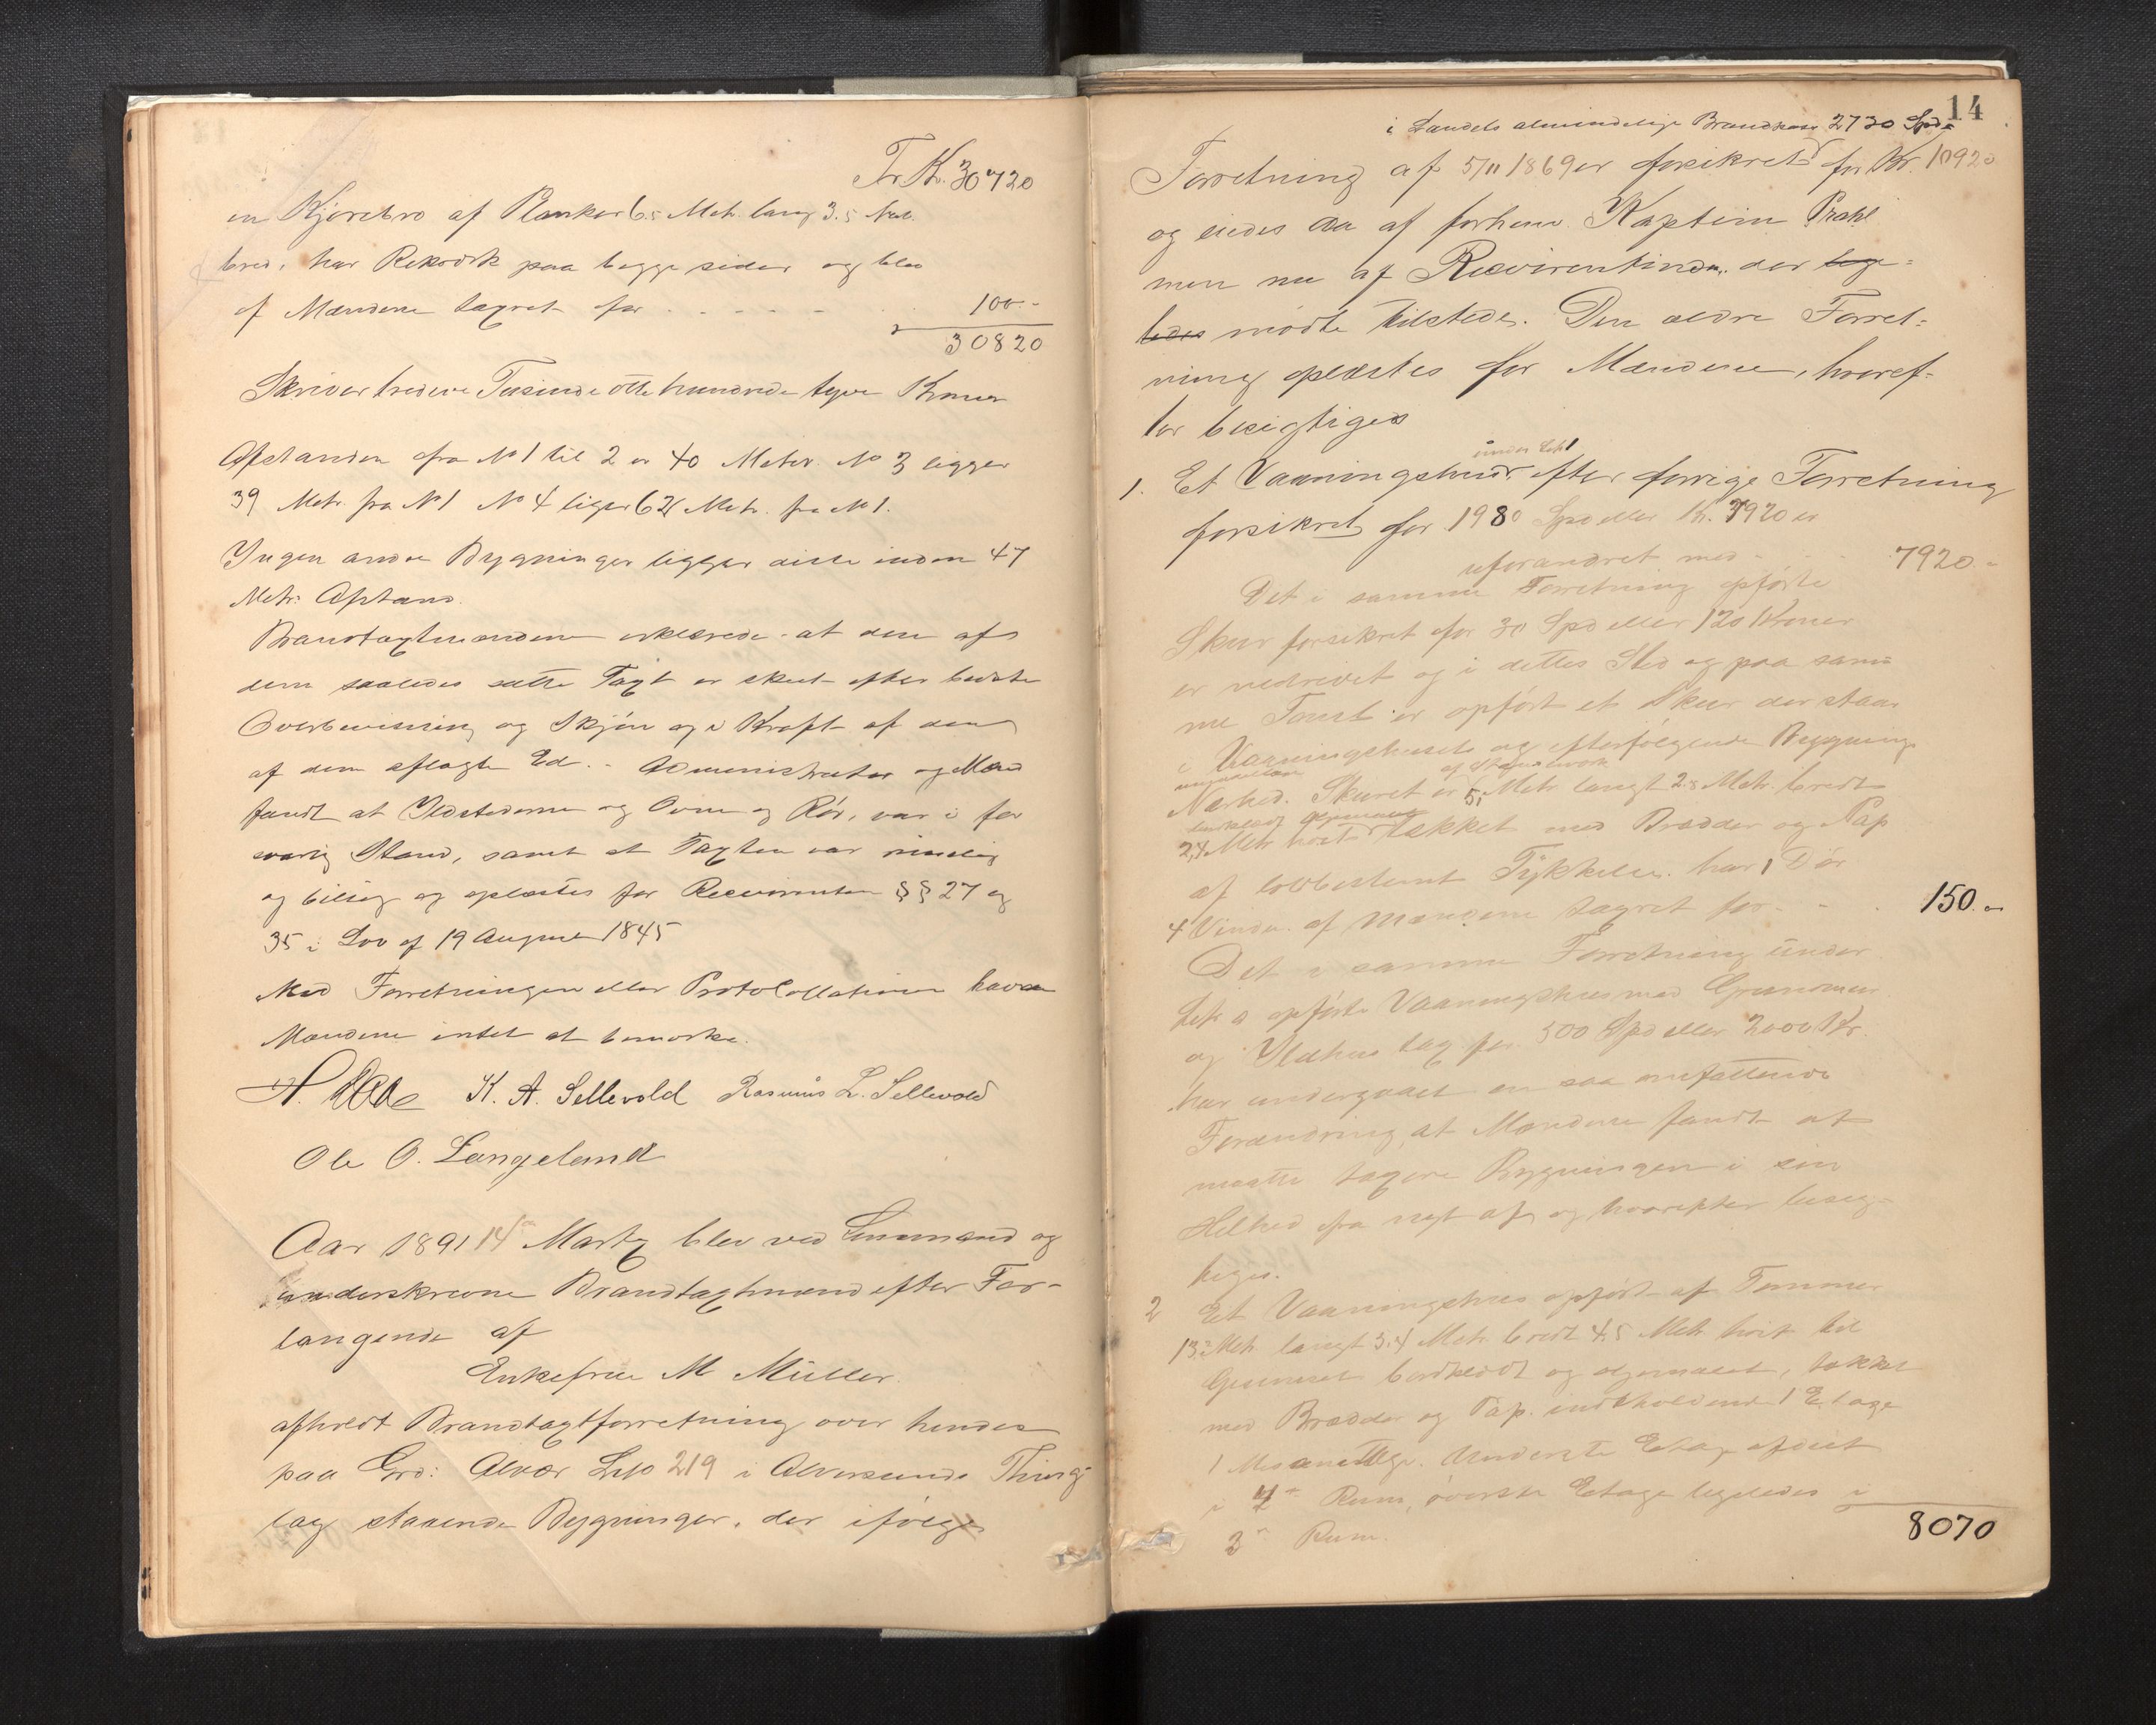 Tr. K. 30720
en Kjørebro af Planker 6.5 Metr. lang 3.5 Met.
bred, har Rekværk paa begge sider og blev
af Mændene taxret for . . . . . 100.-
30820
Skriver tredeve Tusinde otte hundrede tyve Kroner
Afstanden fra No 1 til 2 er 40 Meter. No 3 ligger
39 Metr. fra No 1 No 4 liger 62 Metr. fra No 1.
Ingen andre Bygninger ligger disse inden 47
Metr: Afstand.
Brandtaxtmændene erklærede at den af
dem saaledes satte Taxt er skeet efter bedste
Overbevisning og Skjøn og i Kraft af den
af dem aflagte Ed. - Administrator og Mænd
fandt at Ildstederne og Ovne og Rør, var i for
svarlig Stand, samt at Taxten var rimelig
og billig og oplæstes for Reqvirenten §§ 27 og
35 i Lov af 19 August 1845
Med Forretningen eller Protokollationen havde
Mændene intet at bemærke.
K. A. Sellevold Rasmus L. Sellevold
Ole O. Langeland
Aar 1891 14de Marts blev ved Lensmand og
underskrevne Brandtaxtmænd efter For-
langende af
Enkefrue M Müller
afholdt Brandtaxtforretning over hendes
paa Grd: Alvær Lno 219 i Alversunds Thing-
lag staaende Bygninger, der ifølge
14
i Landets almindelige Brandkasse 2730 Spd
Forretning af 5/11 1869 er forsikret for Kr. 10920
og eiedes da af forhenv. Kaptein Prahl
men nu af Reqvirentinden, der lige=
ledes mødte tilstede. Den ældre Forret=
ning oplæstes for Mændene, hvoref=
ter besigtiges
under Litr 1
1. Et Vaaningshus efter forrige Forretning
forsikret for 1980 Spd eller Kr. 7920 er
uforandret med - - - 7920.-
Det i samme Forretning opførte
Skur forsikret for 30 Spd eller 120 Kroner
er nedrevet og i dettes Sted og paa sam=
me Tomt er opført et Skur der staar
i Vaaningshusets og efterfølgende Bygnings
umiddelbare af Stavværk
Nærhed. Skuret er 5.i Metr langt 2.8 Metr. bredt
bordklædt oljemalet
2,4 Metr høit tækket med Brædder og Pap
af lovbestemt Tykkelse. har 1 Dør
4 Vindu. af Mændene taxret for - - . 150.-
Det i samme Forretning under
Litr a opførte Vaaningshus med Grundmur
og Ildhus tax. for 500 Spd eller 2000 Kr.
har undergaaet en saa omfattende
Forandring, at Mændene fandt at
maatte taxere Bygningen i sin
Helhed fra nyt af, og hvorefter besig-
tiges.
2 Et Vaaningshus opført af Tømmer
13.2 Metr langt 5.4 Metr bredt 4.5 Metr høit til
Gesimset bordklædt og oljemalet, tækket
med Brædder og Pap. indeholdende 1 Etage
1 Mesanettage. Underste Etage afdelt
i 7- Rum, øverste Etage ligeledes i
3- Rum.
8070